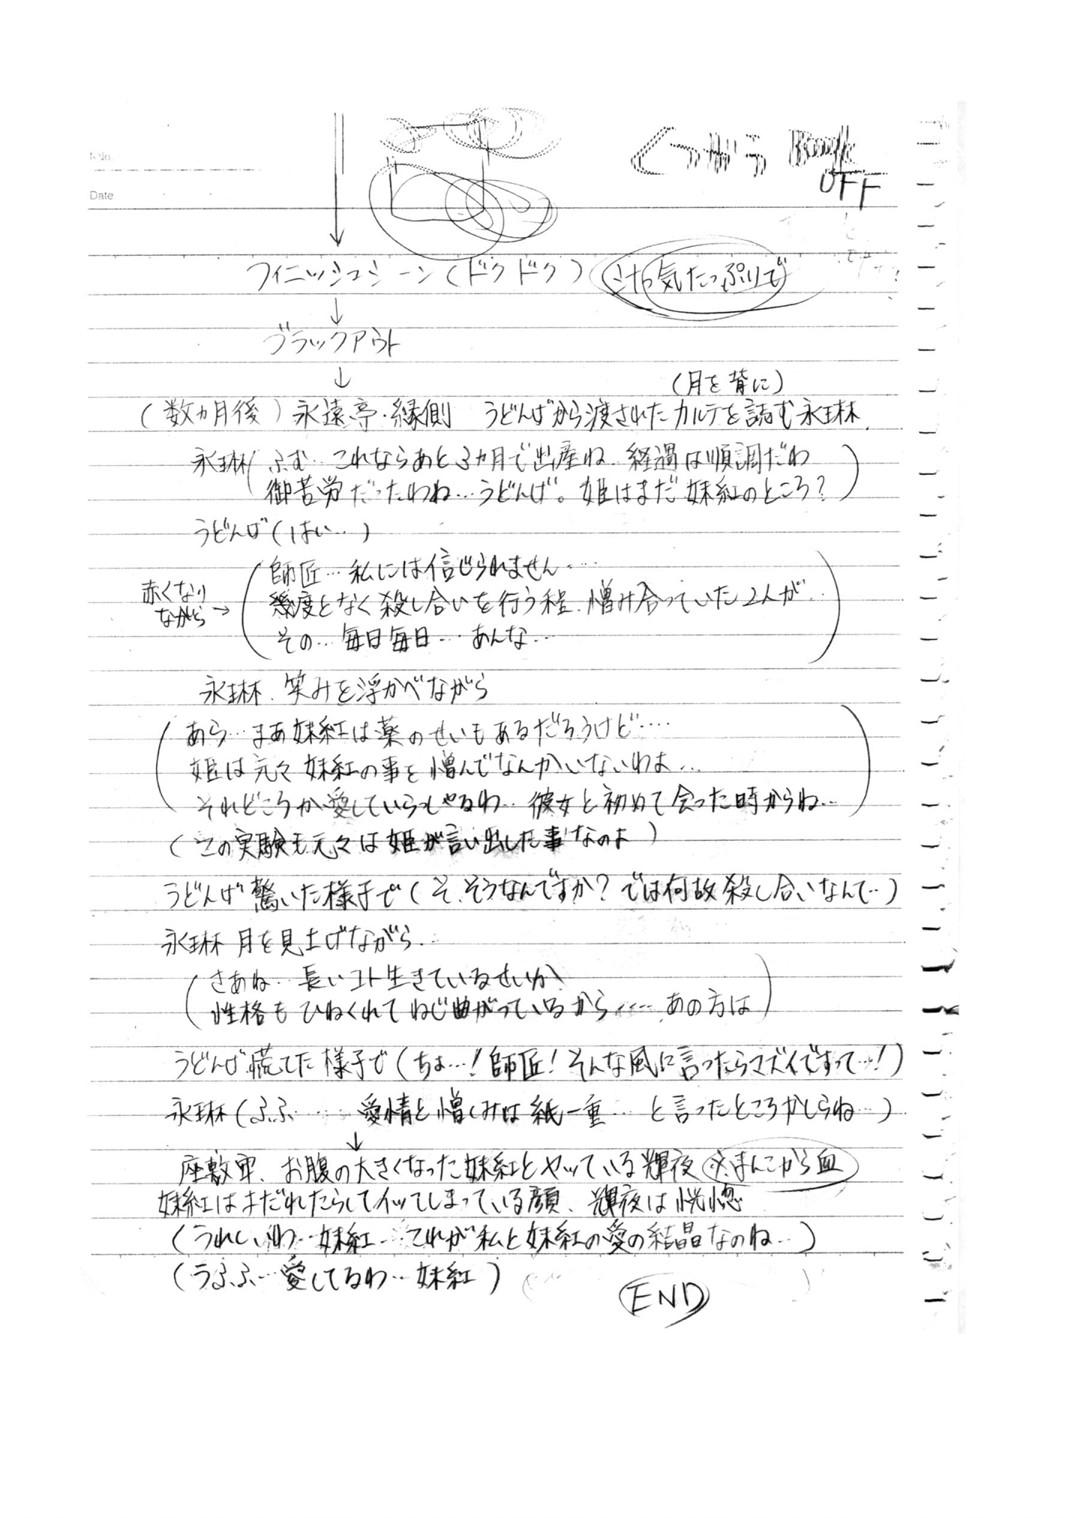 No.
Date
くっころ
OFF
フィニッシュシーン(ドクドク) 気たっぷりで
↓
ブラックアウト
↓
(月を背に)
(数ヵ月後) 永遠亭・縁側 うどんげから渡されたカルテを読む永琳
永琳(ふむ…これならあと3ヵ月で出産ね 経過は順調だわ
御苦労だったわね…うどんげ。姫はまだ妹紅のところ?)
うどんげ(はい…)
赤くなり
ながら→
(師匠…私には信じられません…
幾度となく殺し合いを行う程、憎み合っていた2人が…
その…毎日毎日…あんな…)
永琳、笑みを浮かべながら
(あら…まあ妹紅は薬のせいもあるだろうけど…
姫は元々妹紅の事を憎んでなんかいないわよ…
それどころか愛していらっしゃるわ…彼女と初めて会った時からね…)
(この実験も元々は姫が言い出した事なのよ)
うどんげ驚いた様子で(そ、そうなんですか?では何故殺し合いなんて…)
永琳 月を見上げながら…
(さあね…長いコト生きているせいか
性格もひねくれてねじ曲がっているから……あの方は)
うどんげ慌てた様子で(ちょ…!師匠!そんな風に言ったらマズイですって…!)
永琳(ふふ……愛情と憎しみは紙一重…と言ったところかしらね…)
↓
座敷牢、お腹の大きくなった妹紅とヤッている輝夜 ※まんこから血
妹紅はよだれたらしてイッてしまっている顔、輝夜は恍惚
(うれしいわ…妹紅…これが私と妹紅の愛の結晶なのね…)
(うふふ…愛してるわ…妹紅)
END